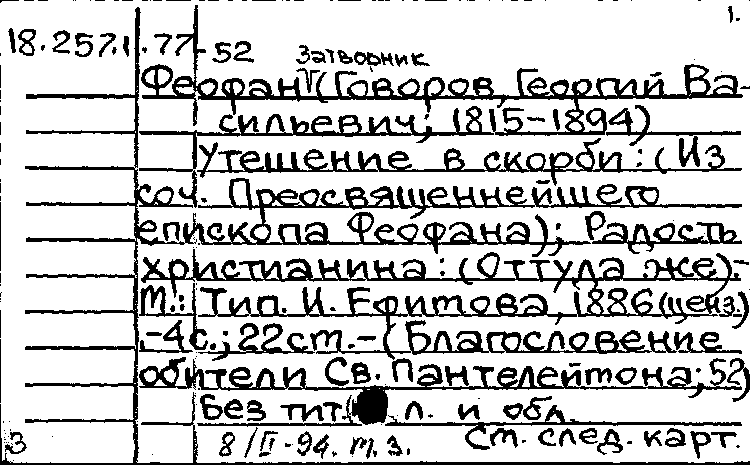 1.
18.257.1.77-52 Затворник
Феофан (Говоров, Георгий Ва-
сильевич; 1815-1894)
Утешение в скорби: (Из
соч. Преосвященнейшего
епископа Феофана); Радость
христианина: (Оттуда же).-
М.: Тип. И. Ефимова, 1886 (ценз.)
.-4с.; 22см.-(Благословение
обители Св. Пантелеймона; 52)
Без тит. л. и обл.
3 8/II-94. м. з. См. след. карт.